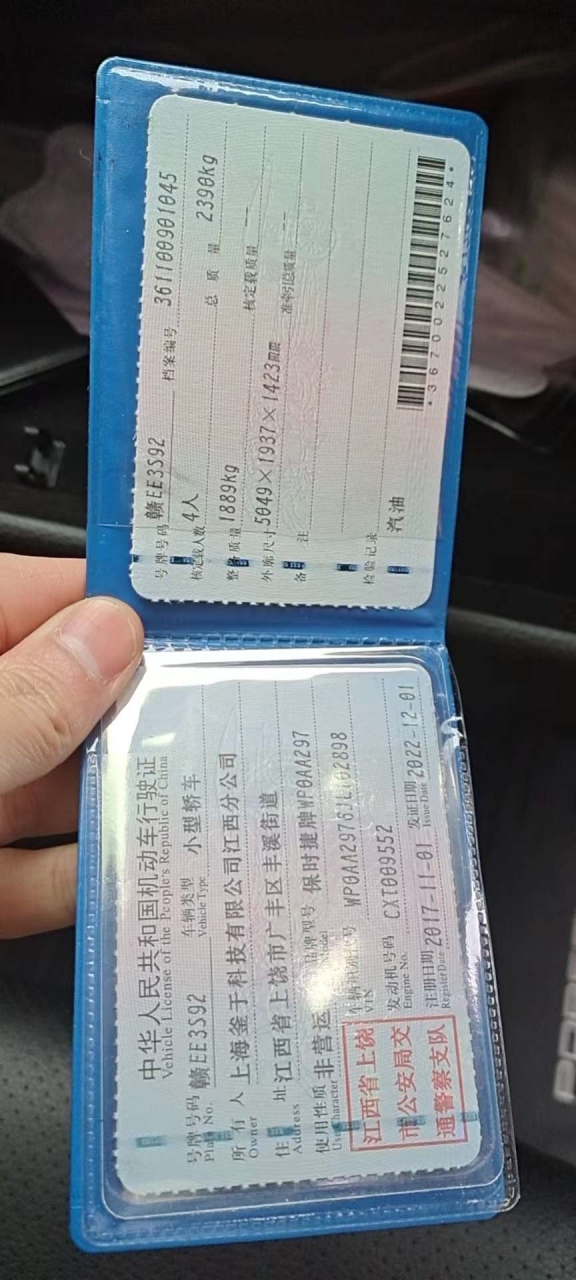 号牌号码 赣EE3S92 档案编号 361100901045
核定载人数 4人 总质量 2390kg
整备质量 1889kg 核定载质量 --
外廓尺寸 5049×1937×1423mm 准牵引总质量 --
备注
检验记录
汽油
*3670022527624*
中华人民共和国机动车行驶证
Vehicle License of the People's Republic of China
号牌号码 赣EE3S92 车辆类型 小型轿车
Plate No. Vehicle Type
所有人 上海釜于科技有限公司江西分公司
Owner
住址 江西省上饶市广丰区丰溪街道
Address
使用性质 非营运 品牌型号 保时捷牌WP0AA297
Use Character Model
江西省上饶
市公安局交
通警察支队
车辆识别代号
VIN
发动机号码 CXT009552
Engine No.
注册日期 2017-11-01 发证日期 2022-12-01
Register Date Issue Date